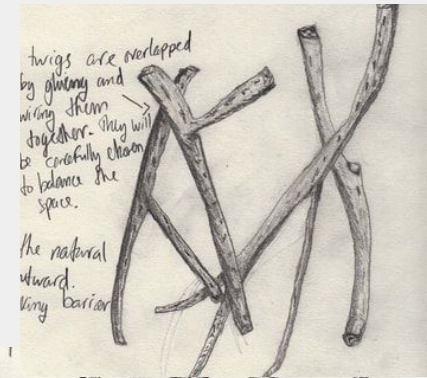 twigs are overlapped
by glueing and
wiring them
together. They will
be carefully chosen
to balance the
space.
the natural